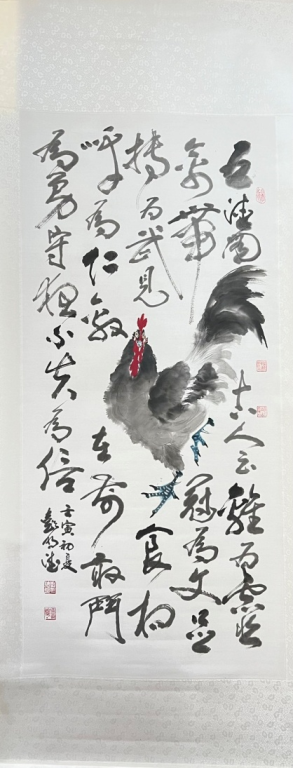 五德圖
古人云雞有
帶冠為文足
搏為武見食相
呼為仁敵在前敢鬥
為勇守夜不失為信
壬寅初夏